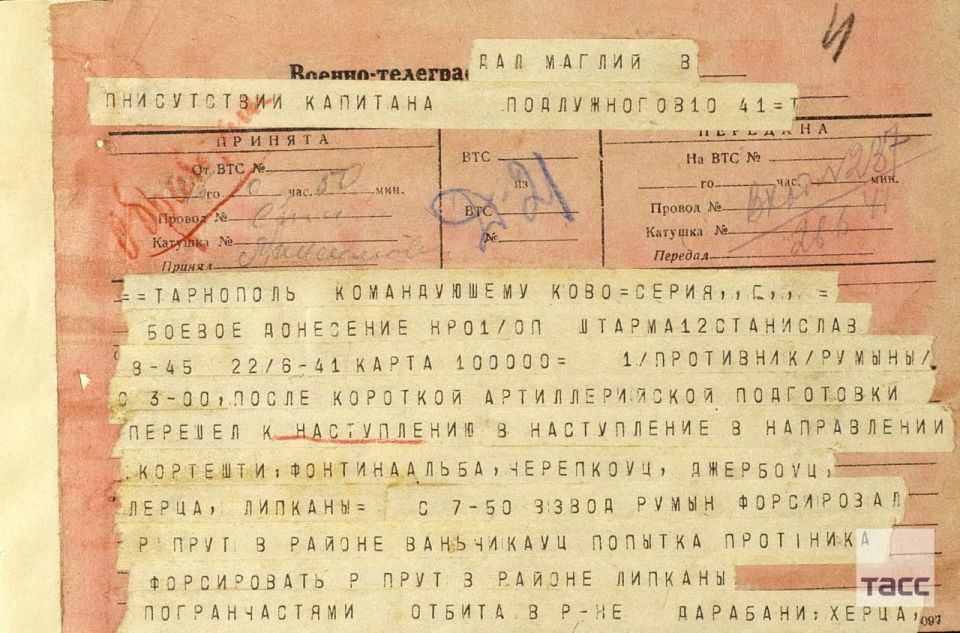 4
Военно-телегра
ДАЛ МАГЛИЙ В
ПНИСУТСТВИИ КАПИТАНА ПОДЛУЖНОГО810 41=Т
ПРИНЯТА
ПЕРЕДАНА
От ВТС №
ВТС
На ВТС №
го час. 50 мин.
из
го час. мин.
Провод №
ВТС
Провод №
Катушка №
№
Катушка №
Принял
Передал
вход №237
Д-21
==ТАРНОПОЛЬ КОМАНДУЮШЕМУ КОВО=СЕРИЯ,,Г,, =
БОЕВОЕ ДОНЕСЕНИЕ НР01/ОП ШТАРМА12СТАНИСЛАВ
8-45 22/6-41 КАРТА 100000= 1/ПРОТИВНИК/РУМЫНЫ/
С 3-00,ПОСЛЕ КОРОТКОЙ АРТИЛЛЕРИЙСКОЙ ПОДГОТОВКИ
ПЕРЕШЕЛ К НАСТУПЛЕНИЮ В НАСТУПЛЕНИЕ В НАПРАВЛЕНИИ
КОРТЕШТИ,ФОНТИНААЛЬБА,ЧЕРЕПКОУЦ, ДЖЕРБОУЦ,
ЛЕРЦА, ЛИПКАНЫ= С 7-50 ВЗВОД РУМЫН ФОРСИРОВАЛ
Р ПРУТ В РАЙОНЕ ВАНЬЧИКАУЦ ПОПЫТКА ПРОТІНИКА
ФОРСИРОВАТЬ Р ПРУТ В РАЙОНЕ ЛИПКАНЫ
ПОГРАНЧАСТЯМИ ОТБИТА В Р-НЕ ДАРАБАНИ,ХЕРЦА,
ТАСС
097